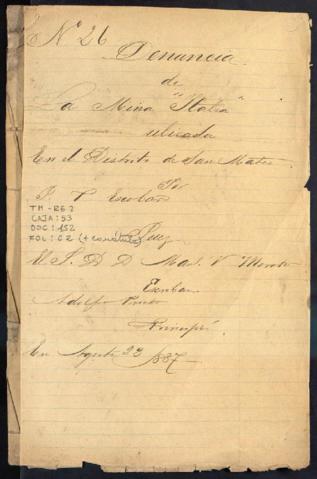 Nº 26
Denuncia
de
La Mina "Italia"
ubicada
En el Distrito de San Mateo
Por
P. P Escobar
TM-RE 2
CAJA: 53
DOC: 152
FOL: 02 (+ carátula)
Juez
D. D Man. V Morote
Escribano
Adolfo Prieto
Principió
En Agosto 23 1887